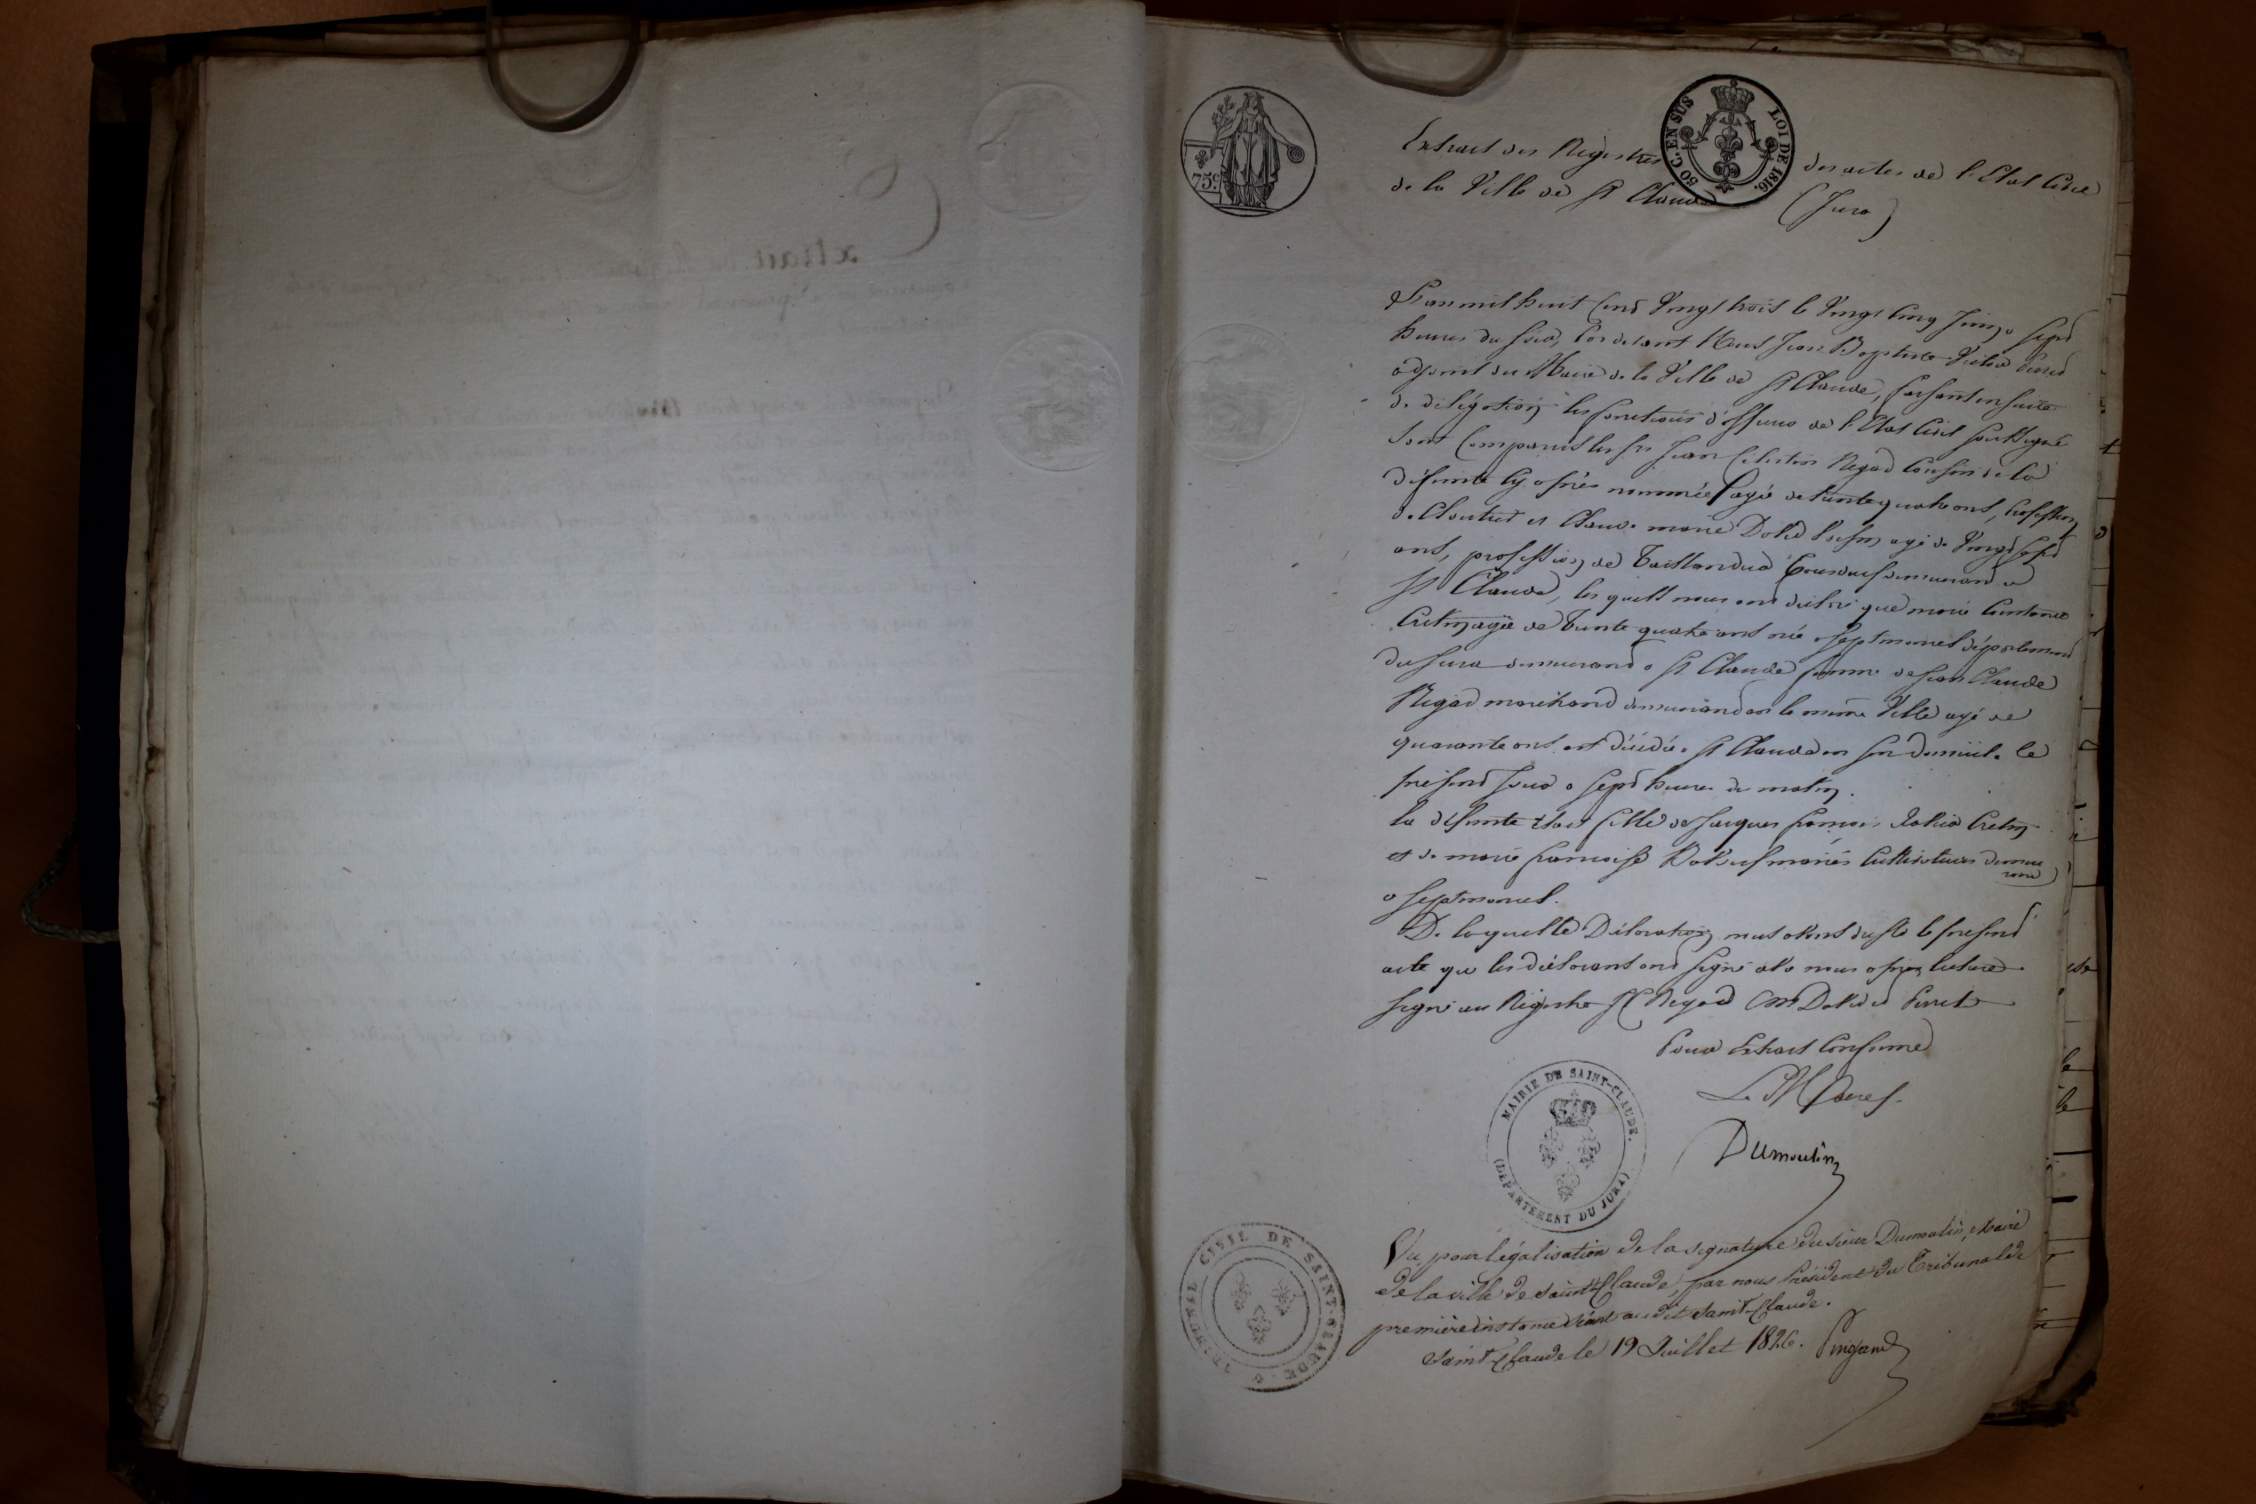 75 c.
50 C. EN SUS LOI DE 1816.
Extrait des Registres des actes de l'Etat Civil
de la Ville de St Claude (Jura)
L'an mil huit Cent Vingt trois le Vingt Cinq Juin, a sept
heures du soir, Par devant Nous Jean Baptiste Victor Perret
adjoint du Maire de la Ville de St Claude, faisant en suite
de délégation les fonctions d'officier de l'Etat Civil soussigné
sont Comparus les srs Jean Celestin Regad Cousin de la
défunte Cy après nommée agé de trente quatre ans, profession
de Cloutier et Claude marie David agé de Vingt sept
ans, profession de Taillandier tous deux demeurant a
St Claude, les quels nous ont déclaré que marie Constance
Cretin agée de Trente quatre ans née a Septmoncel département
du Jura demeurant a St Claude femme de Jean Claude
Regad marchand demeurant en la meme Ville agé de
quarante ans, est décédée a St Claude en son domicile le
présent jour a sept heures du matin.
la défunte etait fille de Jacques françois Cretin
et de marie françoise mariés Cultivateurs demeu
rant
a Septmoncel.
De laquelle Déclaration nous avons dressé le présent
acte que les déclarants ont signé avec nous après lecture
signé au Registre JC Regad CM David et Perret
Pour Extrait Conforme
Le Maire
Dumoulin
MAIRIE DE SAINT-CLAUDE.
(DÉPARTEMENT DU JURA)
TRIBUNAL CIVIL DE SAINT-CLAUDE
Vu pour légalisation de la signature du sieur Dumoulin, Maire
de la ville de saint-Claude, par nous Président du Tribunal de
première instance séant au dit saint-Claude.
Saint-Claude le 19 Juillet 1826.